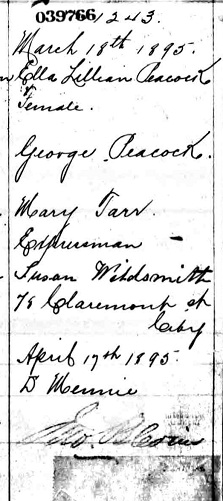 039766 1243.
March 18th 1895.
Ella Lillian Peacock
Female.
George Peacock.
Mary Tarr.
Expressman
Susan Wildsmith
78 Claremont st
City
April 17th 1895.
D Mennie